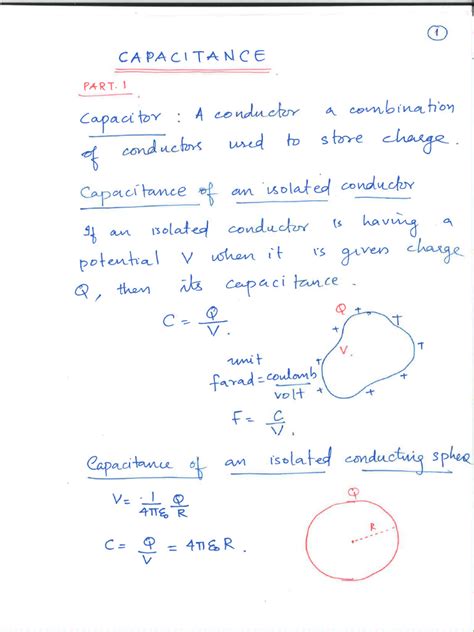 1
CAPACITANCE
PART.1
Capacitor : A conductor a combination
of conductors used to store charge.
Capacitance of an isolated conductor
If an isolated conductor is having a
potential V when it is given charge
Q, then its capacitance.
C = Q/V.
Q
V.
+ + + + + + + +
unit
farad = coulomb/volt
F = C/V.
Capacitance of an isolated conducting sphere
V = 1/4πε₀ Q/R
C = Q/V = 4πε₀R.
Q
R